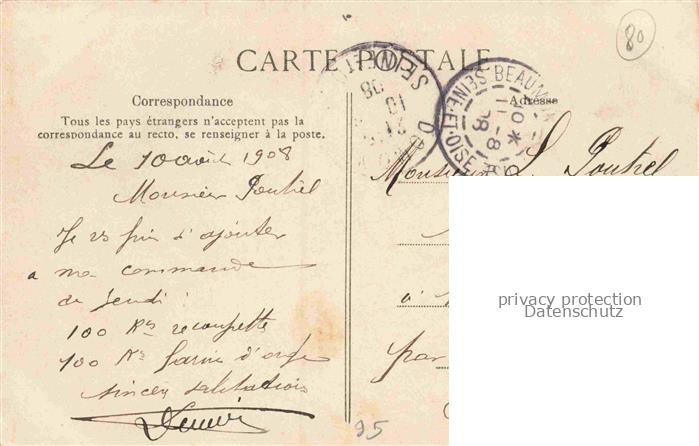 80
CARTE POSTALE
Correspondance
Tous les pays étrangers n'acceptent pas la
correspondance au recto, se renseigner à la poste.
Adresse
SEINE-ET-OISE
Le 10 août 1908
Monsieur
Je vs prie d'ajouter
a ma commande
de jeudi
100 Ks recoupette
100 Ks farine d'orge
sincères salutations
Monsieur L.
à
par
privacy protection
Datenschutz
95